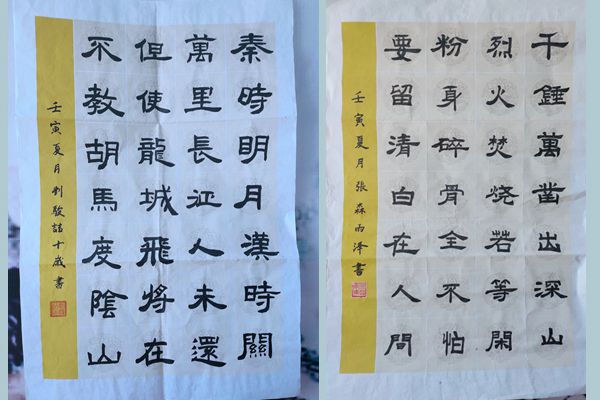 秦時明月漢時關
萬里長征人未還
但使龍城飛將在
不教胡馬度陰山
壬寅夏月 十歲書
千錘萬凿出深山
烈火焚烧若等閑
粉身碎骨全不怕
要留清白在人間
壬寅夏月 張森雨泽書